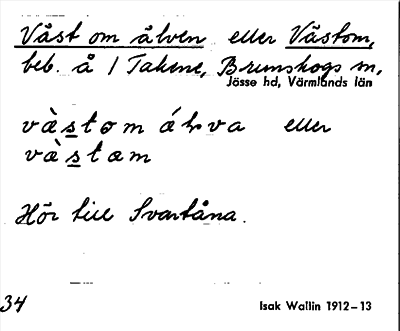 Våst om älven eller Våstom,
beb. å 1 Takene, Brunskogs sn,
Jösse hd, Värmlands län
våstom álva eller
våstam
Hör till Svartåna.
34
Isak Wallin 1912–13